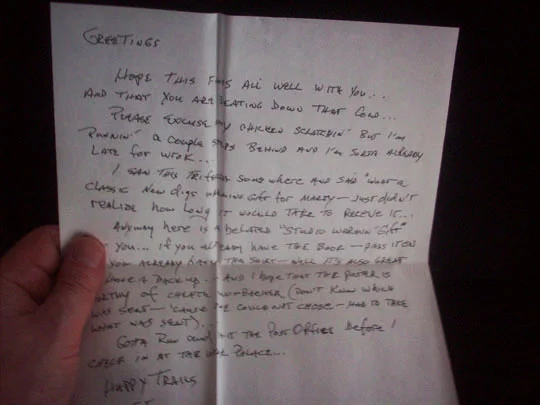 GREETINGS
HOPE THIS FINDS ALL WELL WITH YOU...
AND THAT YOU ARE BEATING DOWN THAT COLD...
PLEASE EXCUSE MY CHICKEN SCRATCHIN' BUT I'M
RUNNIN' A COUPLE STEPS BEHIND AND I'M SORTA ALREADY
LATE FOR WORK...
I SAW THIS SOMEWHERE AND SAID "WHAT A
CLASSIC NEW DIGS WARMING GIFT FOR MARTY - JUST DIDN'T
REALIZE HOW LONG IT WOULD TAKE TO RECEIVE IT...
ANYWAY HERE IS A BELATED "STUDIO WARMING GIFT"
YOU... IF YOU ALREADY HAVE THE BOOK - PASS IT ON
YOU ALREADY HAVE THE SHIRT - WELL IT'S ALSO GREAT
HAVE A BACKUP... AND I HOPE THAT THE POSTER IS
OF (DON'T KNOW WHICH
WAS SENT - 'CAUSE COULD NOT CHOSE - HAD TO TAKE
WHAT WAS SENT)...
GOTTA RUN AND HIT THE POST OFFICE BEFORE I
CHECK IN AT THE PALACE...
HAPPY TRAILS